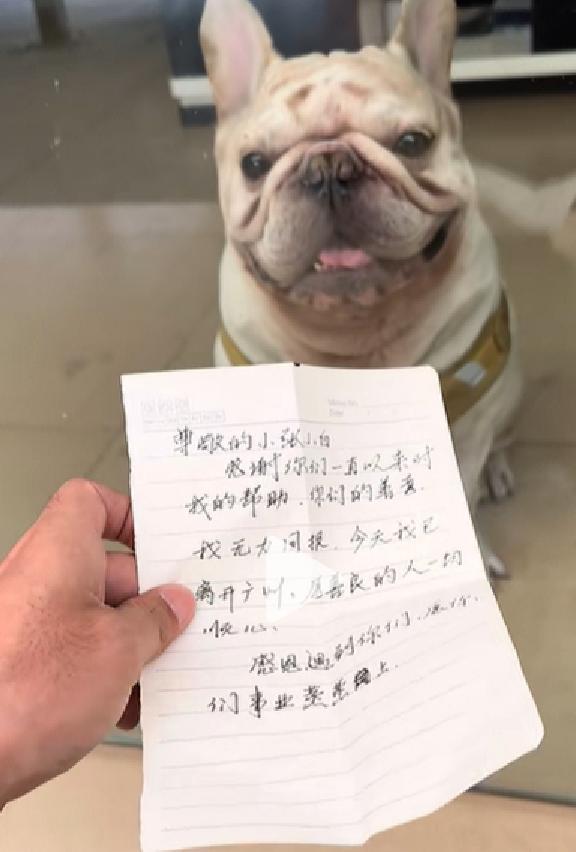 尊敬的小张小白
感谢你们一直以来对
我的帮助.你们的善意.
我无力回报.今天我已
离开广州.愿善良的人一切
顺心.
感恩遇到你们.愿你.
们事业蒸蒸上.